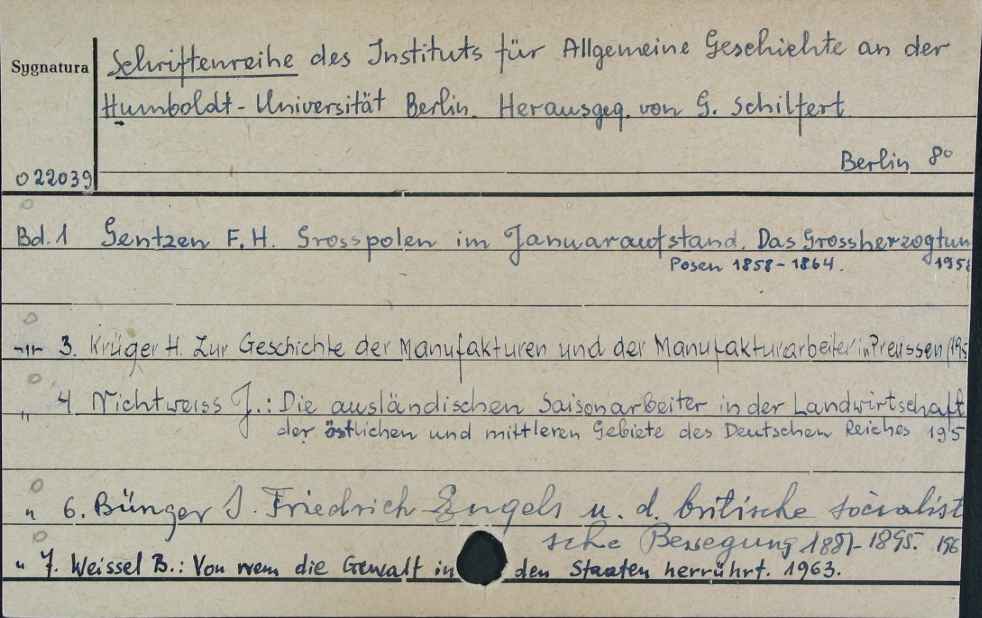 Schriftenreihe des Instituts für Allgemeine Geschichte an der
Sygnatura
Humboldt-Universität Berlin. Herausgeg. von G. Schilfert
Berlin 8o
022039
Bd. 1 Gentzen F. H. Grosspolen im Januaraufstand. Das Grossherzogtum
Posen 1858-1864. 1958
-"- 3. Krüger H. Zur Geschichte der Manufakturen und der Manufakturarbeiter in Preussen (195
" 4 Nichtweiss J.: Die ausländischen Saisonarbeiter in der Landwirtschaft
der östlichen und mittleren Gebiete des Deutschen Reiches 195
" 6. Bünger S. Friedrich Engels u. d. britische socialist
sche Bewegung 1881-1895. 196
" 7. Weissel B.: Von wem die Gewalt in den Staaten herrührt. 1963.